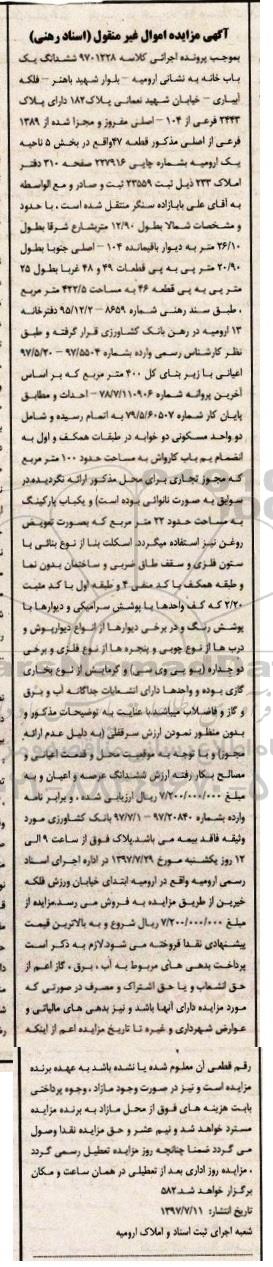 آگهی مزایده اموال غیر منقول (اسناد رهنی)
بموجب پرونده اجرائی کلاسه ۹۷۰۱۲۲۸ ششدانگ یک
باب خانه به نشانی ارومیه - بلوار شهید باهنر - فلکه
آبیاری - خیابان شهید نعمانی پلاک۱۸۲ دارای پلاک
۲۴۴۳ فرعی از ۱۰۴ - اصلی مفروز و مجزا شده از ۱۳۸۹
فرعی از اصلی مذکور قطعه ۴۷واقع در بخش ۵ ناحیه
یک ارومیه بشماره چاپی ۲۲۷۹۱۶ صفحه ۳۱۰ دفتر
املاک ۲۳۳ ذیل ثبت ۲۳۵۵۹ ثبت و صادر و مع الواسطه
به آقای علی بابازاده سنگر منتقل شده است ، با حدود
و مشخصات شمالا بطول ۱۲/۹۰ متربشارع شرقا بطول
۲۶/۱۰ متر به دیوار باقیمانده ۱۰۴ - اصلی جنوبا بطول
۲۰/۹۰ متر پی به پی قطعات ۴۹ و ۴۸ غربا بطول ۲۵
متر پی به پی قطعه ۴۶ به مساحت ۴۲۲/۵ متر مربع
، طبق سند رهنی شماره ۸۶۵۹ - ۹۵/۱۲/۲ دفترخانه
۱۳ ارومیه در رهن بانک کشاورزی قرار گرفته و طبق
نظر کارشناس رسمی وارده بشماره ۹۷/۵۵۰۴ - ۹۷/۵/۲۰
اعیانی با زیر بنای کل ۴۰۰ متر مربع که بر اساس
آخرین پروانه شماره ۷۸/۷/۱۱۰۹۰۶ - احداث و مطابق
پایان کار شماره ۷۹/۵/۶۰۵۰۷ به اتمام رسیده و شامل
دو واحد مسکونی دو خوابه در طبقات همکف و اول به
انضمام یم باب کارواش به مساحت حدود ۱۰۰ متر مربع
که مجوز تجاری برای محل مذکور ارائه نگردیده(در
سوابق به صورت نانوائی بوده است) و یکباب پارکینگ
به مساحت حدود ۲۲ متر مربع که بصورت تعویض
روغن نیز استفاده میگردد. اسکلت بنا از نوع بنائی با
ستون فلزی و سقف طاق ضربی و ساختمان بدون نما
و طبقه همکف با کد منفی ۴ و طبقه اول با کد مثبت
۲/۲۰ که کف واحدها با پوشش سرامیکی و دیوارها با
پوشش رنگ و در برخی دیوارها از انواع دیوارپوش و
درب ها از نوع چوبی و پنجره ها از نوع فلزی و برخی
دو جداره (یو پی وی سی) و گرمایش از نوع بخاری
گازی بوده و واحدها دارای انشعابات جداگانه آب و برق
و گاز و فاضلاب میباشد.با عنایت به توضیحات مذکور و
بدون منظور نمودن ارزش سرقفلی (به دلیل عدم ارائه
مجوز) و با توجه به موقعیت محل و قدمت اعیانی و
مصالح بکار رفته ارزش ششدانگ عرصه و اعیان و به
مبلغ ۷/۲۰۰/۰۰۰/۰۰۰ ریال ارزیابی شده ، و برابر نامه
وارده بشماره ۹۷/۲۰۸۴۰ - ۹۷/۷/۱ بانک کشاورزی مورد
وثیقه فاقد بیمه می باشد.پلاک فوق از ساعت ۹ الی
۱۲ روز یکشنبه مورخ ۱۳۹۷/۷/۲۹ در اداره اجرای اسناد
رسمی ارومیه واقع در ارومیه ابتدای خیابان ورزش فلکه
خیرین از طریق مزایده به فروش می رسد.مزایده از
مبلغ ۷/۲۰۰/۰۰۰/۰۰۰ ریال شروع و به بالاترین قیمت
پیشنهادی نقدا فروخته می شود.لازم به ذکر است
پرداخت بدهی های مربوط به آب ، برق ، گاز اعم از
حق انشعاب و یا حق اشتراک و مصرف در صورتی که
مورد مزایده دارای آنها باشد و نیز بدهی های مالیاتی و
عوارض شهرداری و غیره تا تاریخ مزایده اعم از اینکه
رقم قطعی آن معلوم شده یا نشده باشد به عهده برنده
مزایده است و نیز در صورت وجود مازاد ، وجوه پرداختی
بابت هزینه های فوق از محل مازاد به برنده مزایده
مسترد خواهد شد و نیم عشر و حق مزایده نقدا وصول
می گردد ضمنا چنانچه روز مزایده تعطیل رسمی گردد
، مزایده روز اداری بعد از تعطیلی در همان ساعت و مکان
برگزار خواهد شد.۵۸۲
تاریخ انتشار: ۱۳۹۷/۷/۱۱
شعبه اجرای ثبت اسناد و املاک ارومیه